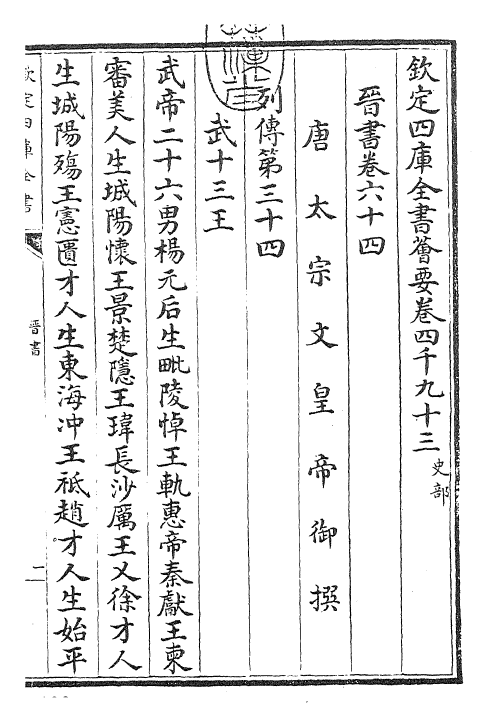 欽定四庫全書薈要卷四千九十三史部
晉書卷六十四
唐太宗文皇帝御撰
列傳第三十四
武十三王
武帝二十六男楊元后生毗陵悼王軌惠帝秦獻王柬
審美人生城陽懷王景楚隱王瑋長沙厲王乂徐才人
生城陽殤王憲匱才人生東海沖王祗趙才人生始平
欽定四庫全書
晉書